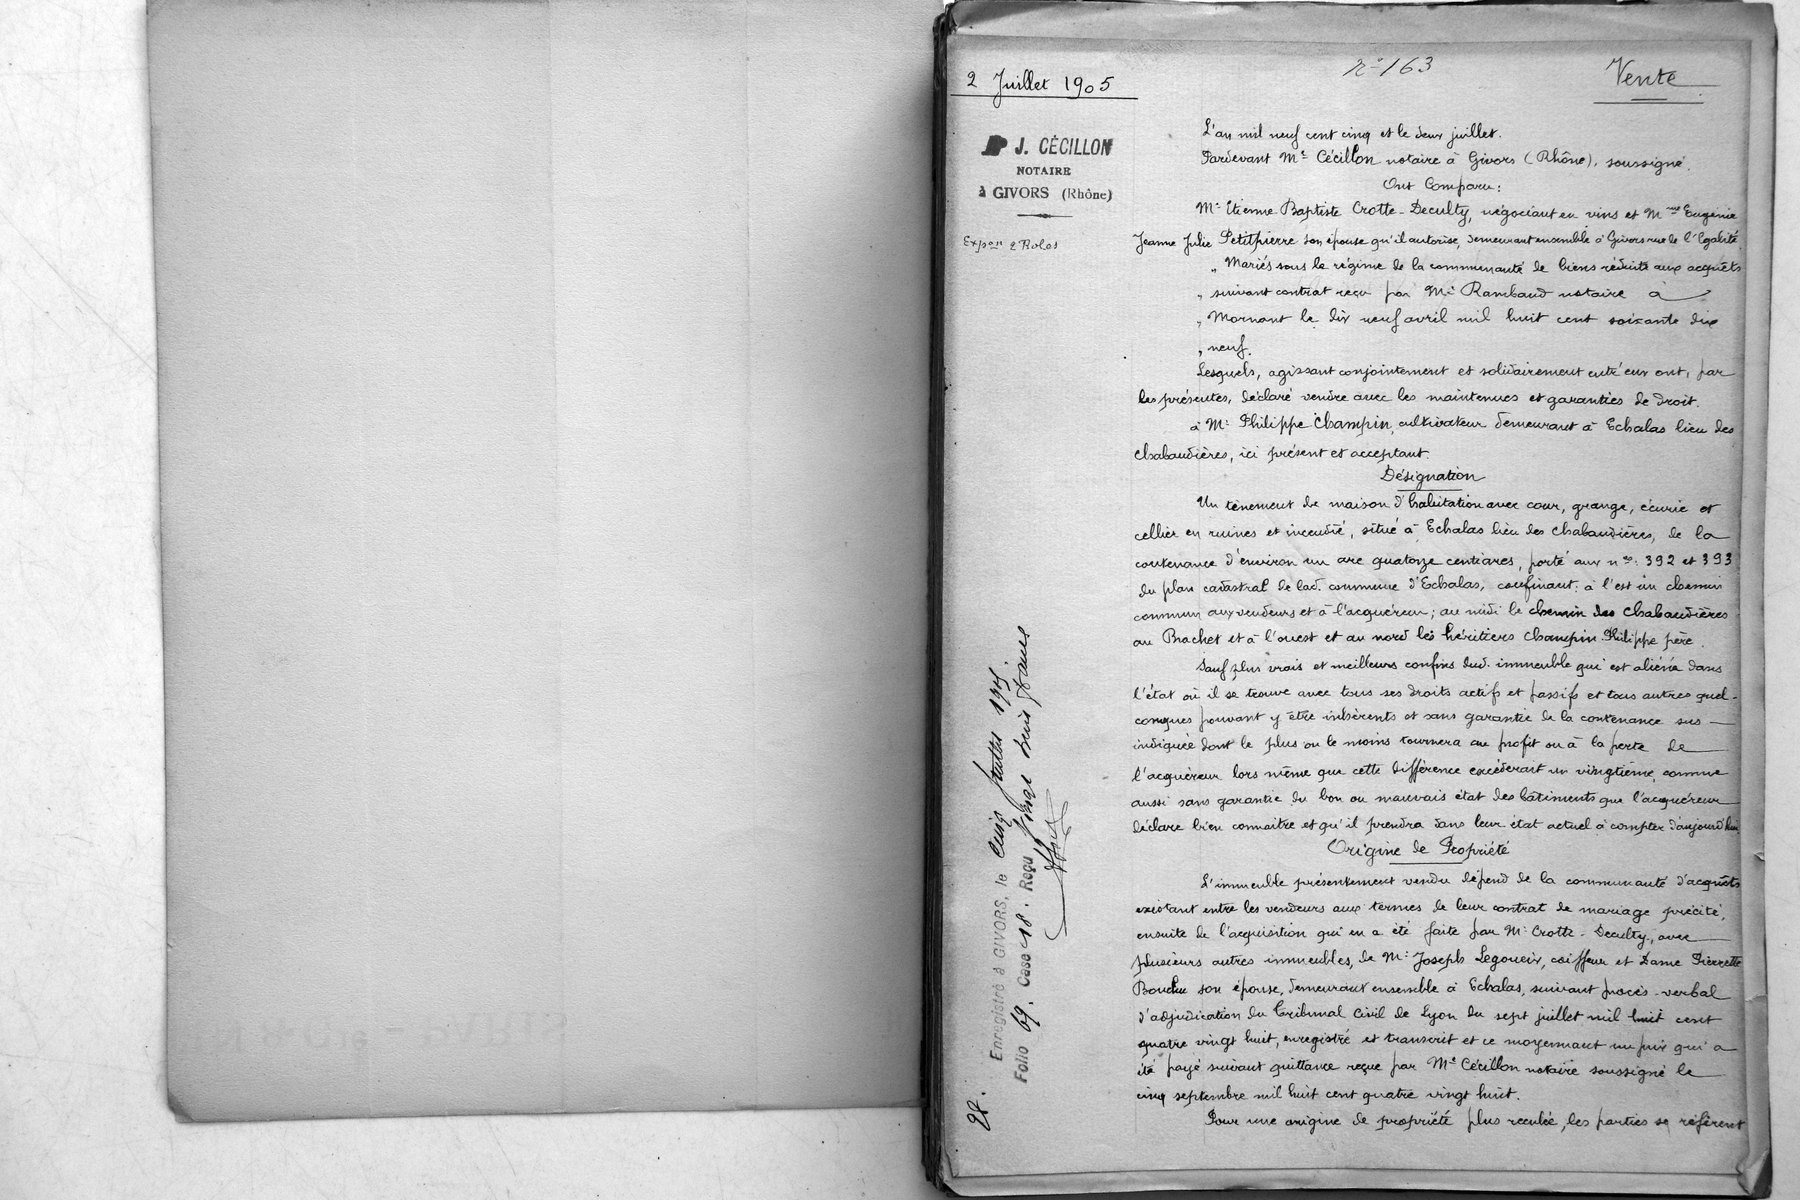 2 Juillet 1905
n° 163
Vente
J. CÉCILLON
NOTAIRE
à GIVORS (Rhône)
Exp.on 2 Roles
L'an mil neuf cent cinq et le deux juillet.
Pardevant Me Cécillon notaire à Givors (Rhône), soussigné.
Ont Comparu:
Mr Etienne Baptiste Crotte-Deculty, négociant en vins et Mme Eugénie
Jeanne Julie Petitpierre son épouse qu'il autorise, demeurant ensemble à Givors rue de l'Egalité.
„ Mariés sous le régime de la communauté de biens réduite aux acquêts
„ suivant contrat reçu par Me Rambaud notaire à
„ Mornant le dix neuf avril mil huit cent soixante dix
„ neuf.
Lesquels, agissant conjointement et solidairement entr'eux ont, par
les présentes, déclaré vendre avec les maintenues et garanties de droit.
à Mr Philippe Champin, cultivateur demeurant à Echalas lieu des
Chabaudières, ici présent et acceptant.
Désignation
Un tènement de maison d'habitation avec cour, grange, écurie et
cellier en ruines et incendié, situé à Echalas lieu des Chabaudières, de la
contenance d'environ un are quatorze centiares, porté aux nos 392 et 393
du plan cadastral de lad. commune d'Echalas, confinant: à l'est un chemin
commun aux vendeurs et à l'acquéreur; au midi le chemin des Chabaudières
au Brachet et à l'ouest et au nord les héritiers Champin Philippe père.
Sauf plus vrais et meilleurs confins dud. immeuble qui est aliéné dans
l'état où il se trouve avec tous ses droits actifs et passifs et tous autres quel-
conques pouvant y être inhérents et sans garantie de la contenance sus
indiquée dont le plus ou le moins tournera au profit ou à la perte de
l'acquéreur lors même que cette différence excéderait un vingtième, comme
aussi sans garantie du bon ou mauvais état des bâtiments que l'acquéreur
déclare bien connaître et qu'il prendra dans leur état actuel à compter d'aujourd'hui
Origine de Propriété
L'immeuble présentement vendu dépend de la communauté d'acquêts
existant entre les vendeurs aux termes de leur contrat de mariage précité,
ensuite de l'acquisition qui en a été faite par Mr Crotte-Deculty, avec
plusieurs autres immeubles, de Mr Joseph Legoueix, coiffeur et Dame Pierrette
Bouchu son épouse, demeurant ensemble à Echalas, suivant procès-verbal
d'adjudication du Tribunal Civil de Lyon du sept juillet mil huit cent
quatre vingt huit, enregistré et transcrit et ce moyennant un prix qui a
été payé suivant quittance reçue par Me Cécillon notaire soussigné le
cinq septembre mil huit cent quatre vingt huit.
Pour une origine de propriété plus reculée, les parties se réfèrent
Enregistré à GIVORS, le cinq juillet 1905
Folio 69. Case 18. Reçu